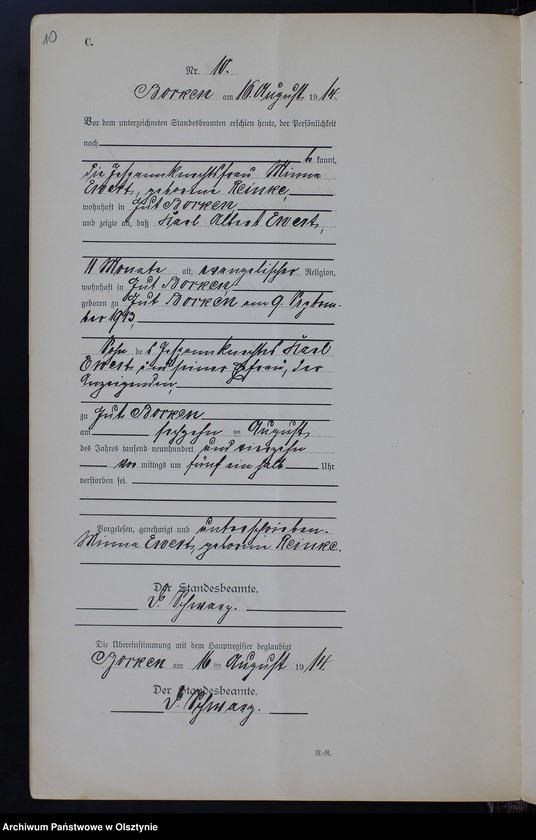 10
C.
Nr. 10.
Borken am 16. August 1914.
Vor dem unterzeichneten Standesbeamten erschien heute, der Persönlichkeit
nach
be kannt,
die Gespannknechtsfrau Minna
Ewert, geborene Reinke,
wohnhaft in Gut Borken,
und zeigte an, daß Karl Albert Ewert,
11 Monate alt, evangelischer Religion,
wohnhaft in Gut Borken,
geboren zu Gut Borken am 9. Septem-
ber 1913,
Sohn des Gespannknechts Karl
Ewert und seiner Ehefrau, der
Anzeigenden,
zu Gut Borken
am sechzehn ten August
des Jahres tausend neunhundert und vierzehn
vor mittags um fünf ein halb Uhr
verstorben sei.
Vorgelesen, genehmigt und unterschrieben.
Minna Ewert, geborene Reinke.
Der Standesbeamte.
Schwarz.
Die Übereinstimmung mit dem Hauptregister beglaubigt
Borken am 16 ten August 1914.
Der Standesbeamte.
Schwarz.
N.-R.
Archiwum Państwowe w Olsztynie